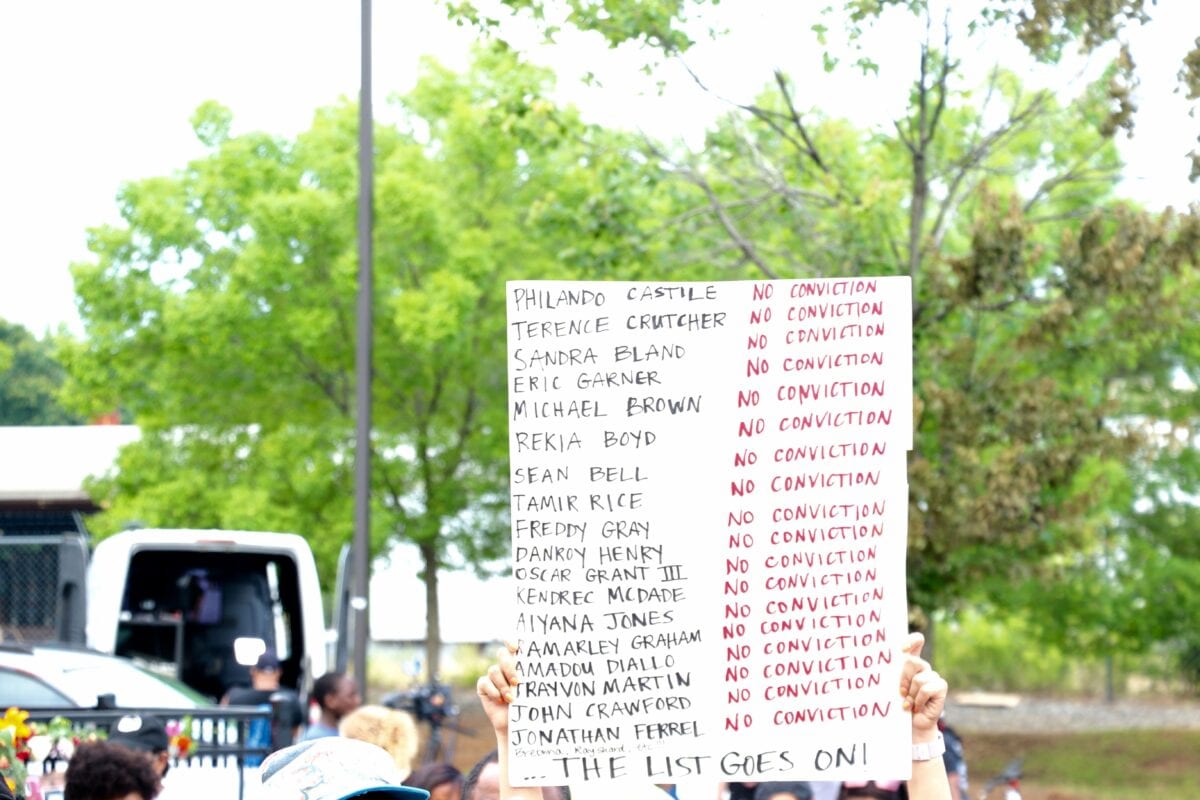 PHILANDO CASTILE NO CONVICTION
TERENCE CRUTCHER NO CONVICTION
SANDRA BLAND NO CONVICTION
ERIC GARNER NO CONVICTION
MICHAEL BROWN NO CONVICTION
REKIA BOYD NO CONVICTION
SEAN BELL NO CONVICTION
TAMIR RICE NO CONVICTION
FREDDY GRAY NO CONVICTION
DANROY HENRY NO CONVICTION
OSCAR GRANT III NO CONVICTION
KENDREC MCDADE NO CONVICTION
AIYANA JONES NO CONVICTION
RAMARLEY GRAHAM NO CONVICTION
AMADOU DIALLO NO CONVICTION
TRAYVON MARTIN NO CONVICTION
JOHN CRAWFORD NO CONVICTION
JONATHAN FERREL NO CONVICTION
Breonna, Rayshard, etc
... THE LIST GOES ON!